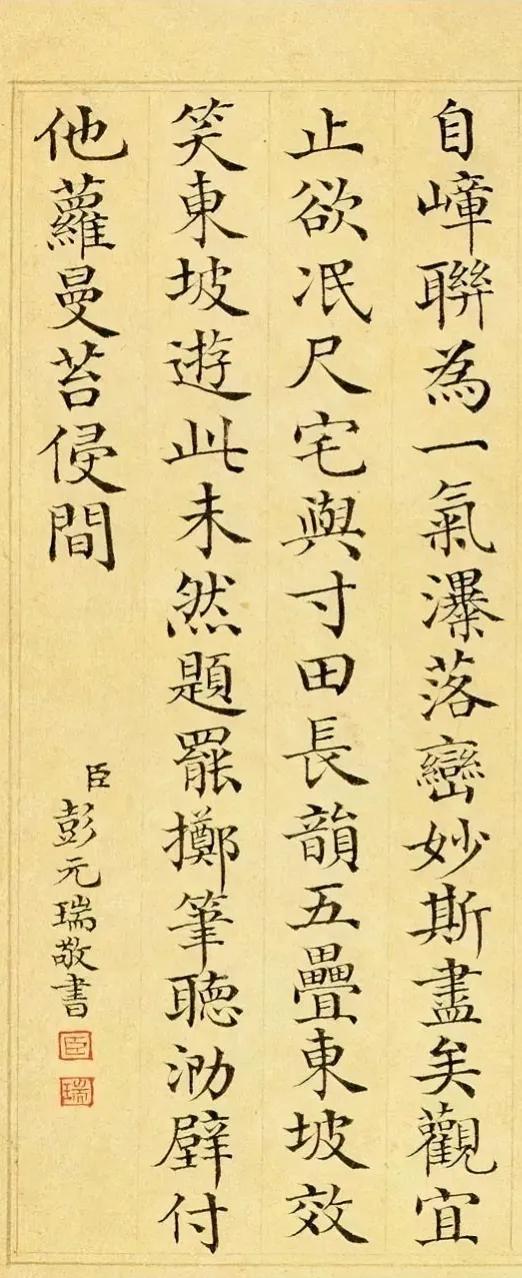 自嶂聯為一氣瀑落巒妙斯盡矣觀宜
止欲泯尺宅與寸田長韻五疊東坡效
笑東坡遊此未然題罷擲筆聽泐壁付
他蘿曼苔侵間
臣彭元瑞敬書
臣
瑞